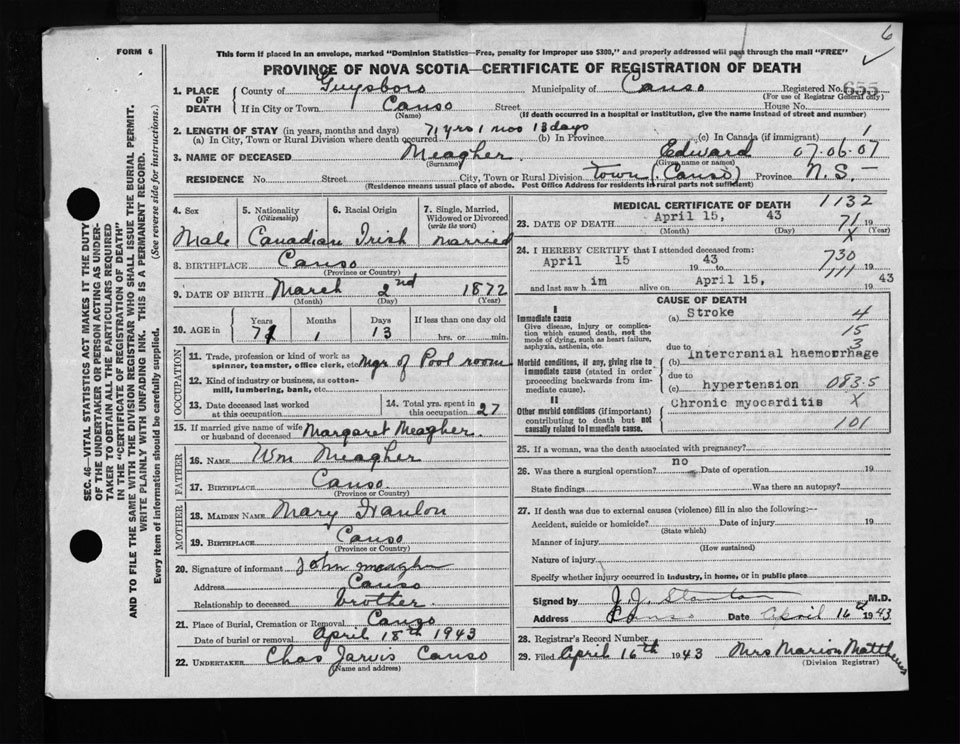 6
FORM 6
This form if placed in an envelope, marked "Dominion Statistics—Free, penalty for improper use $300," and properly addressed will pass through the mail "FREE"
PROVINCE OF NOVA SCOTIA—CERTIFICATE OF REGISTRATION OF DEATH
SEC. 46—VITAL STATISTICS ACT MAKES IT THE DUTY
OF THE UNDERTAKER OR PERSON ACTING AS UNDER-
TAKER TO OBTAIN ALL THE PARTICULARS REQUIRED
IN THE "CERTIFICATE OF REGISTRATION OF DEATH"
AND TO FILE THE SAME WITH THE DIVISION REGISTRAR WHO SHALL ISSUE THE BURIAL PERMIT.
WRITE PLAINLY WITH UNFADING INK. THIS IS A PERMANENT RECORD.
Every item of information should be carefully supplied. (See reverse side for instructions.)
1. PLACE OF DEATH County of Guysboro Municipality of Canso Registered No. 655
(For use of Registrar General only)
If in City or Town Canso Street House No.
(Name) (If death occurred in a hospital or institution, give the name instead of street and number)
2. LENGTH OF STAY (in years, months and days) 71 yrs 1 mos 13 days
(a) In City, Town or Rural Division where death occurred (b) In Province (c) In Canada (if immigrant) 1
3. NAME OF DECEASED Meagher Edward 07.06.01
(Surname) (Given name or names)
RESIDENCE No. Street City, Town or Rural Division Town (Canso) Province N.S.
(Residence means usual place of abode. Post Office Address for residents in rural parts not sufficient)
4. Sex
Male
5. Nationality
(Citizenship)
Canadian
6. Racial Origin
Irish
7. Single, Married,
Widowed or Divorced
(write the word)
Married
8. BIRTHPLACE Canso
(Province or Country)
9. DATE OF BIRTH March 2nd 1872
(Month) (Day) (Year)
10. AGE in Years Months Days If less than one day old
71 1 13 hrs. or min.
OCCUPATION
11. Trade, profession or kind of work as
spinner, teamster, office clerk, etc. Mgr of Pool room
12. Kind of industry or business, as cotton-
mill, lumbering, bank, etc.
13. Date deceased last worked
at this occupation
14. Total yrs. spent in
this occupation 27
15. If married give name of wife
or husband of deceased Margaret Meagher
FATHER
16. NAME Wm Meagher
17. BIRTHPLACE Canso
(Province or Country)
MOTHER
18. MAIDEN NAME Mary Hanlon
19. BIRTHPLACE Canso
(Province or Country)
20. Signature of informant John Meagher
Address Canso
Relationship to deceased brother
21. Place of Burial, Cremation or Removal Canso
Date of burial or removal April 18th 1943
22. UNDERTAKER Chas Jarvis Canso
(Name and address)
MEDICAL CERTIFICATE OF DEATH 1132
23. DATE OF DEATH April 15, 43 71 19
(Month) (Day) X (Year)
24. I HEREBY CERTIFY that I attended deceased from:
April 15 43 730
19 to 111 19
and last saw him alive on April 15, 19 43
CAUSE OF DEATH
I
Immediate cause
Give disease, injury or complica-
tion which caused death, not the
mode of dying, such as heart failure,
asphyxia, asthenia, etc.
(a) Stroke 4
15
3
due to
Morbid conditions, if any, giving rise to
immediate cause (stated in order
proceeding backwards from im-
mediate cause).
(b) Intercranial haemorrhage
due to
(c) hypertension 083.5
II
Other morbid conditions (if important)
contributing to death but not
causally related to immediate cause.
Chronic myocarditis X
101
25. If a woman, was the death associated with pregnancy?
26. Was there a surgical operation? no Date of operation 19
State findings Was there an autopsy?
27. If death was due to external causes (violence) fill in also the following:—
Accident, suicide or homicide? Date of injury 19
(State which)
Manner of injury
(How sustained)
Nature of injury
Specify whether injury occurred in industry, in home, or in public place
Signed by J.J. Stanton M.D.
Address Canso Date April 16th 1943
28. Registrar's Record Number
29. Filed April 16th 1943 Mrs Marion Matthews
(Division Registrar)